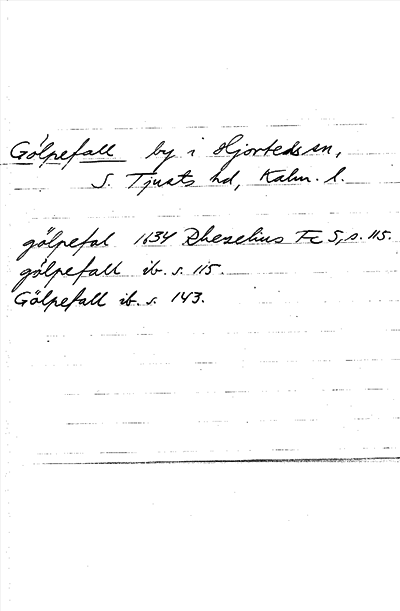 Gölpefall by i Hjorteds sn,
S. Tjusts hd, Kalm. l.
gölpefal 1634 Rhezelius Fc 5, s. 115.
gölpefall ib. s. 115.
Gölpefall ib. s. 143.